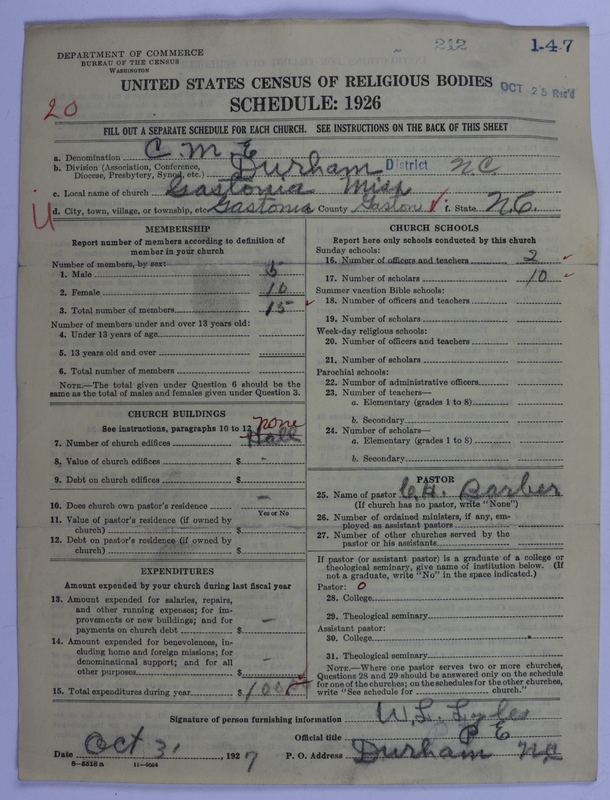 212 1-4-7
DEPARTMENT OF COMMERCE
BUREAU OF THE CENSUS
WASHINGTON
UNITED STATES CENSUS OF RELIGIOUS BODIES
OCT 25 Rec'd
20
SCHEDULE: 1926
FILL OUT A SEPARATE SCHEDULE FOR EACH CHURCH. SEE INSTRUCTIONS ON THE BACK OF THIS SHEET
a. Denomination C. M. E.
b. Division (Association, Conference, Diocese, Presbytery, Synod, etc.) Durham District N.C.
c. Local name of church Gastonia Miss
U
d. City, town, village, or township, etc Gastonia County Gaston f. State N.C.
MEMBERSHIP
Report number of members according to definition of
member in your church
Number of members, by sex:
1. Male 5
2. Female 10
3. Total number of members 15
Number of members under and over 13 years old:
4. Under 13 years of age
5. 13 years old and over
6. Total number of members
NOTE.—The total given under Question 6 should be the
same as the total of males and females given under Question 3.
CHURCH BUILDINGS
See instructions, paragraphs 10 to 12 none
7. Number of church edifices Hall
8. Value of church edifices $ -
9. Debt on church edifices $
10. Does church own pastor's residence –
Yes or No
11. Value of pastor's residence (if owned by
church) $
12. Debt on pastor's residence (if owned by
church) $
EXPENDITURES
Amount expended by your church during last fiscal year
13. Amount expended for salaries, repairs,
and other running expenses; for im-
provements or new buildings; and for
payments on church debt $ –
14. Amount expended for benevolences, in-
cluding home and foreign missions; for
denominational support; and for all
other purposes $ -
15. Total expenditures during year $
CHURCH SCHOOLS
Report here only schools conducted by this church
Sunday schools:
16. Number of officers and teachers 2
17. Number of scholars 10
Summer vacation Bible schools:
18. Number of officers and teachers
19. Number of scholars
Week-day religious schools:
20. Number of officers and teachers
21. Number of scholars
Parochial schools:
22. Number of administrative officers
23. Number of teachers—
a. Elementary (grades 1 to 8)
b. Secondary
24. Number of scholars—
a. Elementary (grades 1 to 8)
b. Secondary
PASTOR
25. Name of pastor C. H. Barber
(If church has no pastor, write "None")
26. Number of ordained ministers, if any, em-
ployed as assistant pastors
27. Number of other churches served by the
pastor or his assistants
If pastor (or assistant pastor) is a graduate of a college or
theological seminary, give name of institution below. (If
not a graduate, write "No" in the space indicated.)
Pastor: 0
28. College
29. Theological seminary
Assistant pastor:
30. College
31. Theological seminary
NOTE.—Where one pastor serves two or more churches,
Questions 28 and 29 should be answered only on the schedule
for one of the churches; on the schedules for the other churches,
write "See schedule for church."
Signature of person furnishing information W. L. Lyles
Official title P E
Date Oct 3, 1927 P. O. Address Durham N.C.
8—5518 a 11—9094